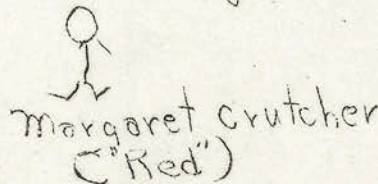 Margaret Crutcher
("Red")